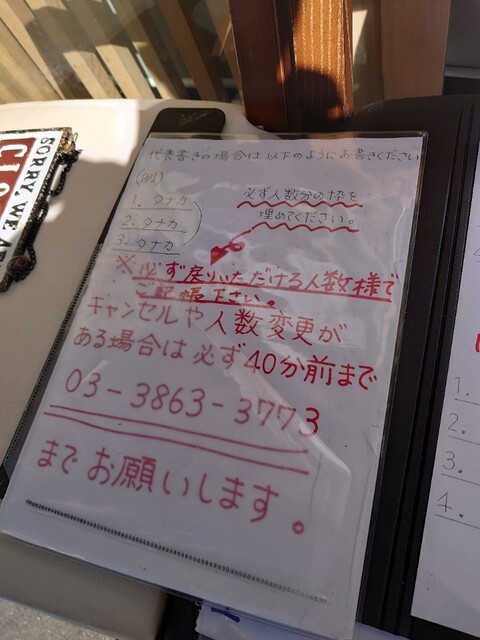 代表書きの場合は以下のようにお書きください
(例)
1. タナカ
2. タナカ
3. タナカ
必ず人数分の枠を
埋めてください。
※必ず戻りいただける人数様で
ご記帳下さい。
キャンセルや人数変更が
ある場合は必ず40分前まで
03-3863-3773
までお願いします。
SORRY, WE AR
CLO
1.
2.
3.
4.